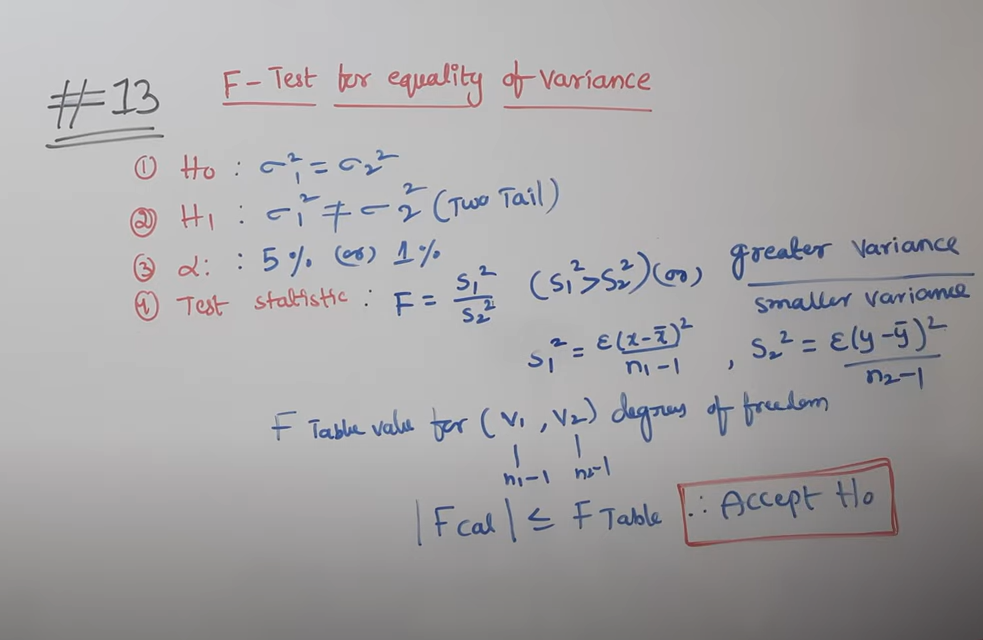 #13
F-Test for equality of variance
① H₀ : σ₁² = σ₂²
② H₁ : σ₁² ≠ σ₂² (Two Tail)
③ α: : 5% (or) 1%
④ Test statistic : F = S₁²/S₂² (S₁² > S₂²) (or) greater variance / smaller variance
S₁² = Ɛ(x-x̄)²/n₁-1 , S₂² = Ɛ(y-ȳ)²/n₂-1
F Table value for (V₁, V₂) degrees of freedom
n₁-1 n₂-1
|Fcal| ≤ F Table ∴ Accept H₀